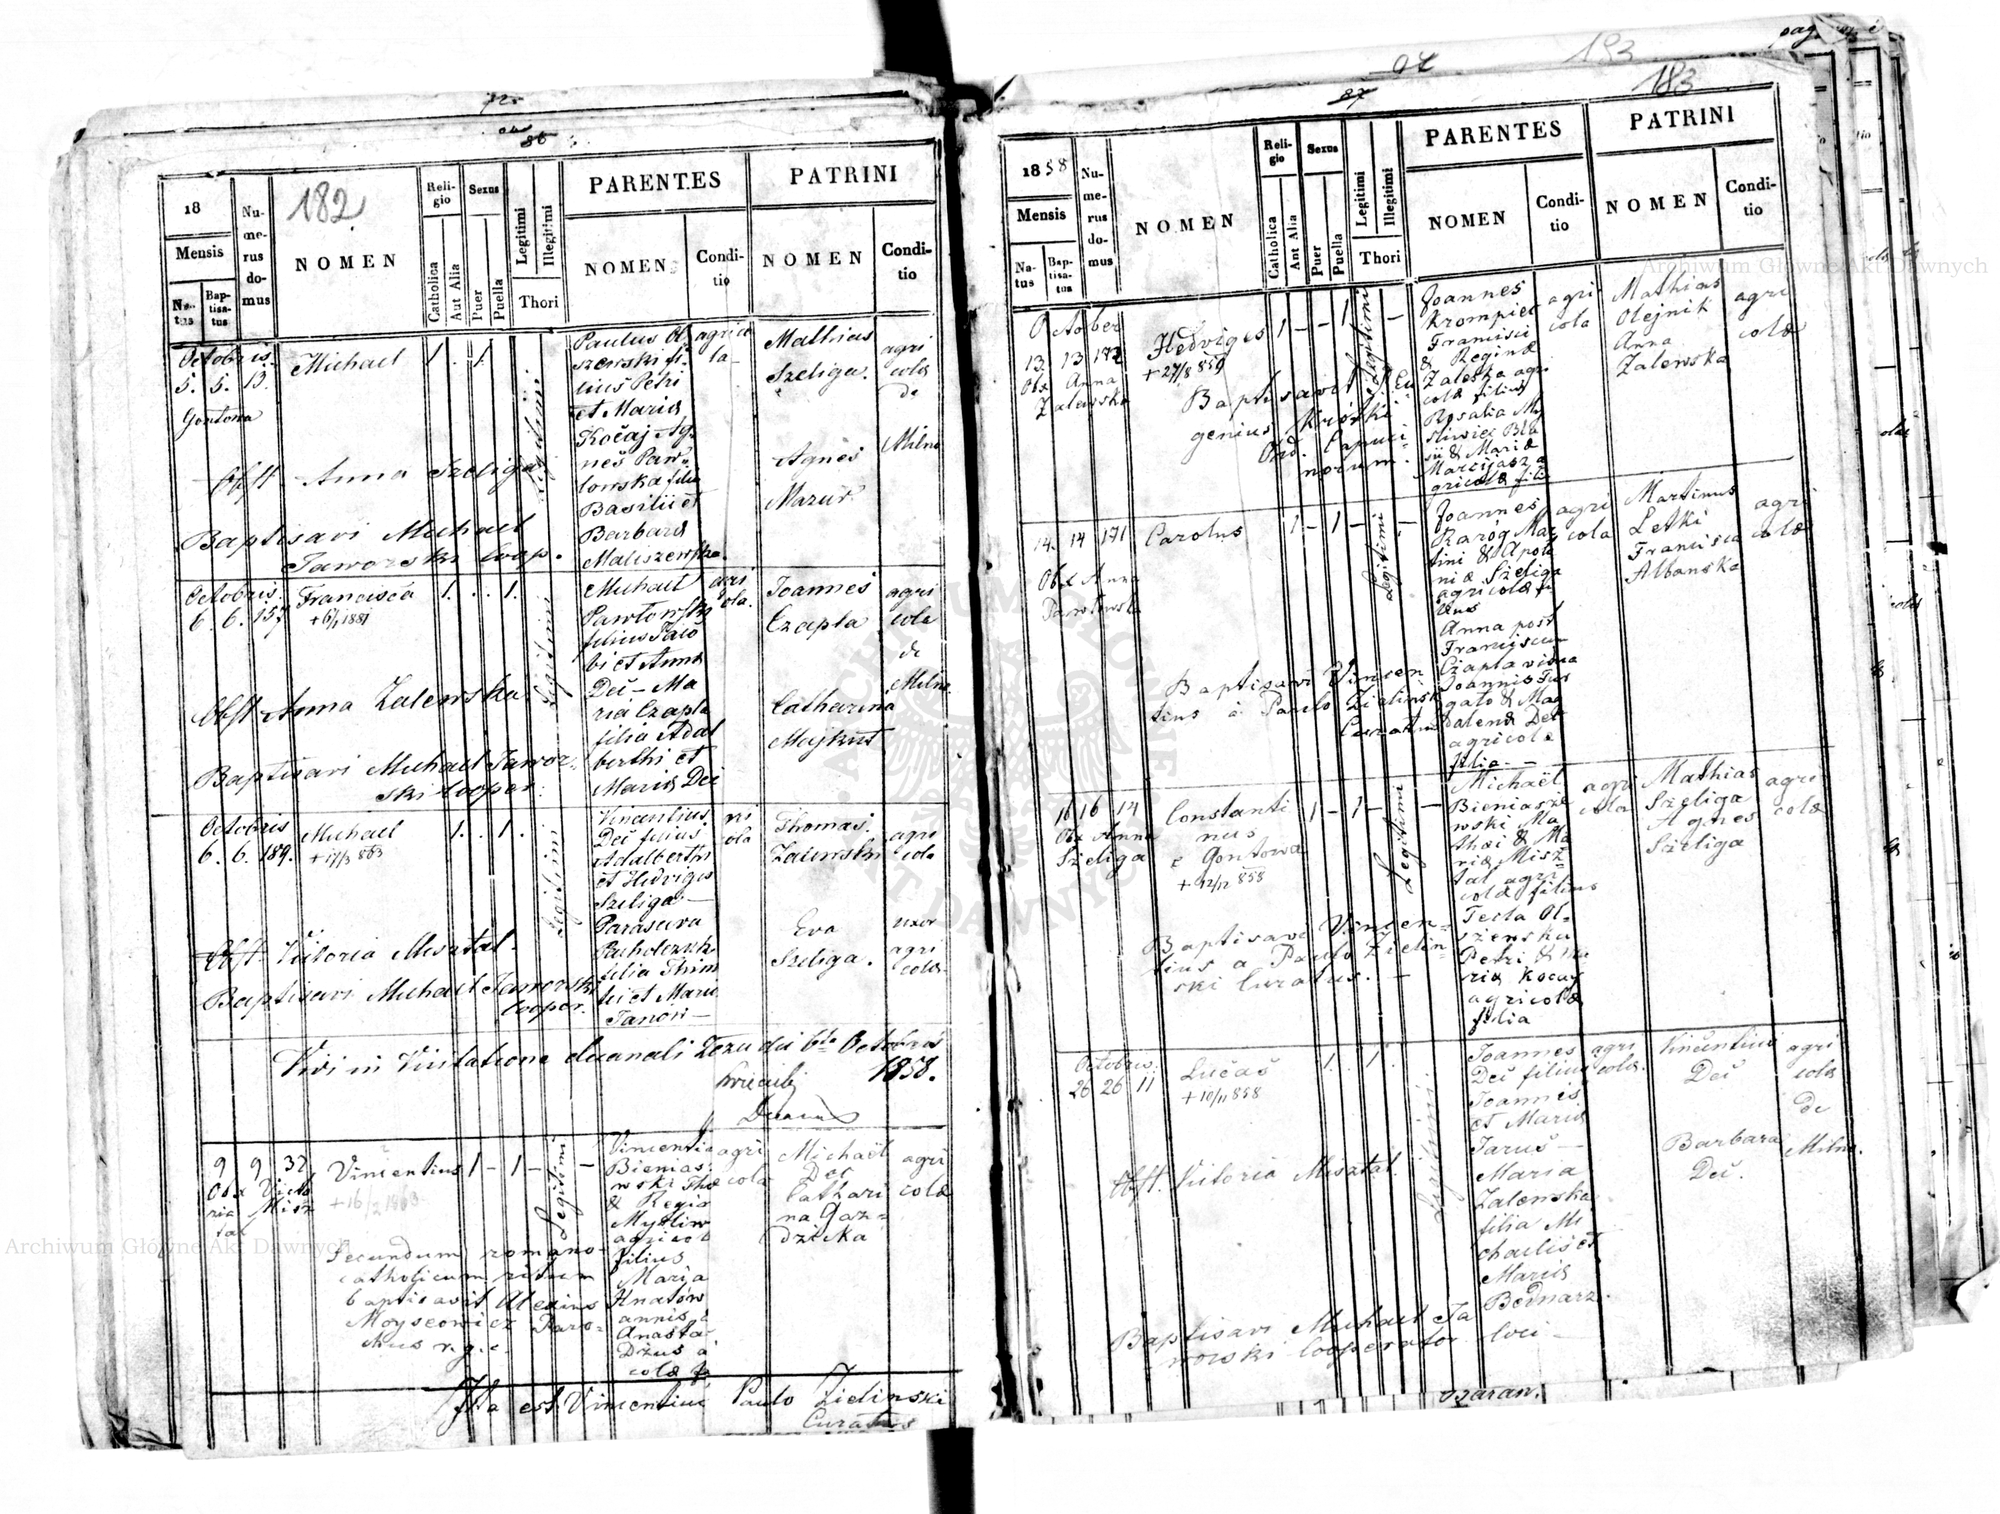 72.
86
18
Mensis
Na-
tus
Bap-
tisa-
tus
Nu-
me-
rus
do-
mus
182
NOMEN
Reli-
gio
Catholica
Aut Alia
Sexus
Puer
Puella
Legitimi
Illegitimi
Thori
PARENTES
NOMEN
Condi-
tio
PATRINI
NOMEN
Condi-
tio
Octobris
5. 5. 13.
Gontowa
Michael
1 . 1.
Legitimi
Obst Anna Szeliga
Baptisavi Michael
Jaworski Coop.
Paulus Ol
szewski fi
lius Petri
et Maria
Kočaj Ag-
neš Paw-
lowska filia
Basilii et
Barbara
Maliszewska
agrico
la
Mathias
Szeliga.
Agnes
Mazur
agri
cola
de
Milno
Octobris.
6. 6. 157
Francisca
+ 6/1 1881
1. . 1.
Legitimi
Obst Anna Zalewska
Baptisavi Michael Jawor-
ski Cooper.
Michael
Pawłowski
filius Jaco
bi et Anna
Deč - Ma
ria Czapla
filia Adal
berthi et
Maria Deč
agri
cola.
Joannes
Czapla
Catharina
Majkut
agri
cola
de
Milno
Octobris
6. 6. 189.
Michael
+ 17/3 863
1. . 1.
Legitimi
Obst Victoria Misztal
Baptisavi Michael Jaworski
Cooper.
Vincentius
Deč filius
Adalberthi
et Hedvigis
Szeliga -
Parascwa
Pacholczuk
filia Thim
fei et Maria
Janow -
gri
cola
Thomas
Zalewski
Eva
Szeliga.
agri
cola
uxor
agri
cola
Vidi in Visitatione decanali Jezu die 6ta Octobris
1858.
Decanus
9 9 32
Obx Victo
ria Misz
tal
Vincentius
+ 16/2 1863
1 - 1 - -
Legitimi
Secundum romano-
catholicum ritum
baptisavit Alexius
Moyseowicz Paro-
chus r.g.c.
Vincenti
Bienias:
wski Tho
& Regia
Mysliw
agricol
filius
Maria
Hnatów
annis &
Anasta
Dzus a
colæ fa
agri
cola
Michaël
Doc
Cathari
na Gaz-
dzicka
agri
colæ
Ita est Vincentius Paulo Zielinski
Curatus
87
183
183
1858
Mensis
Na-
tus
Bap-
tisa-
tus
Nu-
me-
rus
do-
mus
NOMEN
Reli-
gio
Catholica
Aut Alia
Sexus
Puer
Puella
Legitimi
Illegitimi
Thori
PARENTES
NOMEN
Condi-
tio
PATRINI
NOMEN
Condi-
tio
October
13 13 172
Obx Anna
Zalewska
Hedviges
+ 27/8 859
1 - - 1 -
Legitimi
Baptisavit P. Eu
genius Królki
Ord. Capuci-
norum.
Joannes
Krompiec
Francisci
& Reginæ
Zaleska agri
colæ filius
Rosalia My
sliwiec Bla
sii & Mariæ
Marcijasz a
gricolæ filia
agri
cola
Mathias
Olejnik
Anna
Zalewska
agri
colæ
14. 14 171
Obx Anna
Pawłowska
Carolus
1 - 1 - -
Legitimi
Baptisavi Vincen
tius à Paulo Zielinski
Curatus
Joannes
Raróg Mar
tini & Apolo
niæ Szeliga
agricolæ fi
lius
Anna post
Franciscum
Czapla vidua
Joannis Fur
gało & Mag
dalenæ Deč
agricolæ
filia. -
agri
cola
Martinus
Letki
Francisca
Albańska
agri
colæ
16 16 14
Obx Anna
Szeliga
Constanti
nus
e Gontowa
+ 12/12 858
1 - 1 - -
Legitimi
Baptisavi Vincen-
tius a Paulo Zielin-
ski Curatus. -
Michaël
Bieniasze
wski Ma
thæi & Ma
riæ Misz-
tal agri
colæ filius
Tecla Ol-
szewska
Petri & Ma
riæ Kocaj
agricolæ
filia
agri
cola
Mathias
Szeliga
Agnes
Szeliga
agri
colæ
Octobris.
26 26 11
Lucaš
+ 10/11 858
1. . 1.
Legitimi
Obst. Victoria Misztal.
Baptisavi Michael Ja
worski Cooperator loci -
Joannes
Deč filius
Joannis
et Maria
Jarus -
Maria
Zalewska
filia Mi
chaelis et
Maria
Bednarz.
agri
cola.
Vincentius
Deč
Barbara
Deč.
agri
cola
de
Milno.
Archiwum Główne Akt Dawnych
Archiwum Główne Akt Dawnych
ARCHIWUM GŁÓWNE AKT DAWNYCH